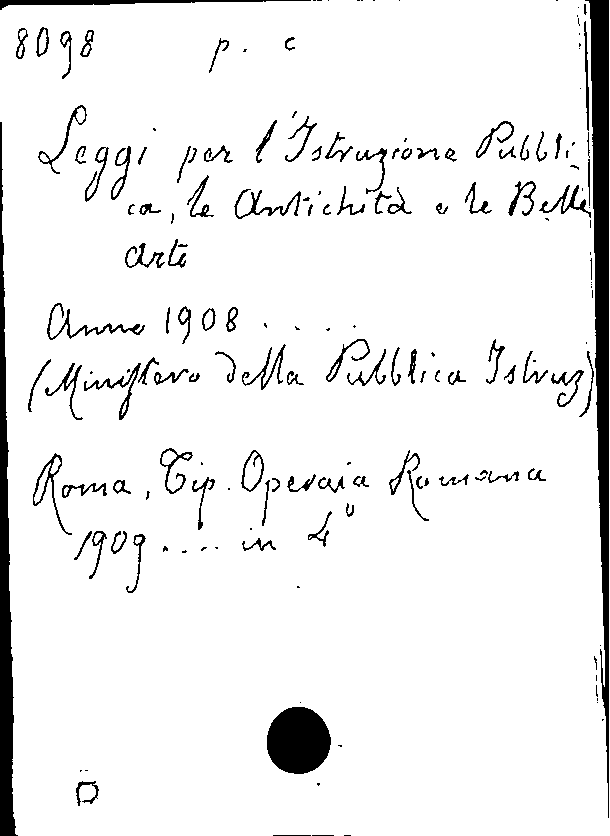 8098 p. c
Leggi per l'Istruzione Pubbli-
ca, le Antichità e le Belle
Arti
Anno 1908 .....
(Ministero della Pubblica Istruz)
Roma, Tip. Operaia Romana
1909 ..... in 4º